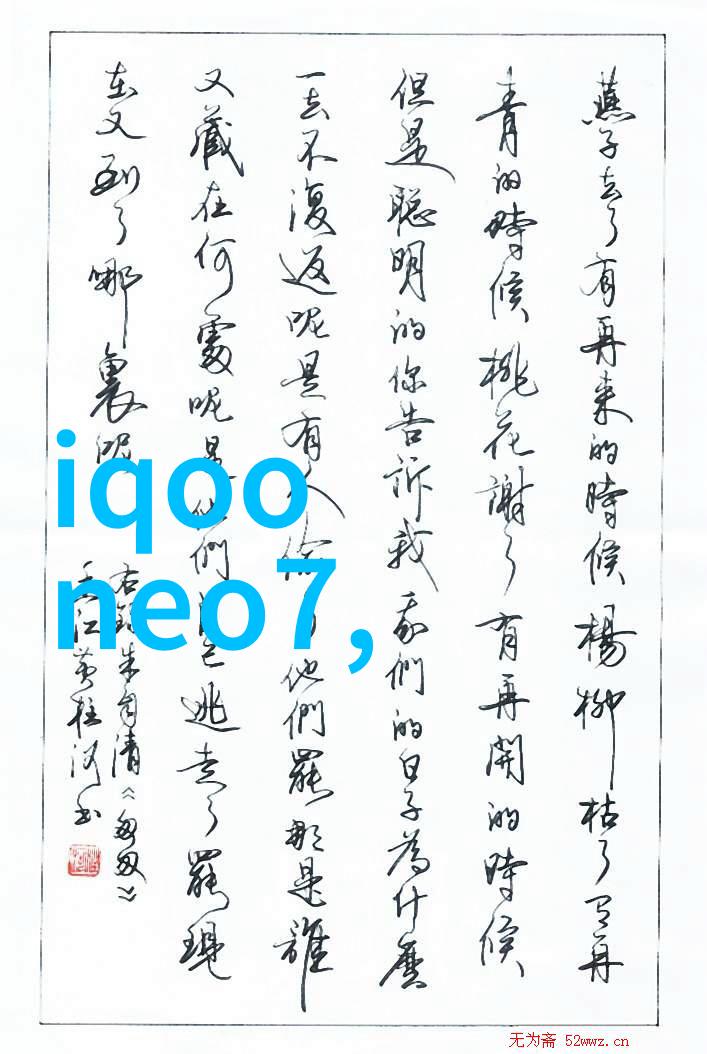 燕子去了有再来的時候楊柳枯了有再
青的時候桃花謝了有再開的時候
但是聪明的你告訴我我們的日子為什麽
一去不復返呢是有人偷他們罷那是誰
又藏在何處呢是他們逃走了罷現
在又到了哪裏呢
右錄朱自清《匆匆》
黄桂河书
iqoo
neo7,
无为斋 52wwz.cn